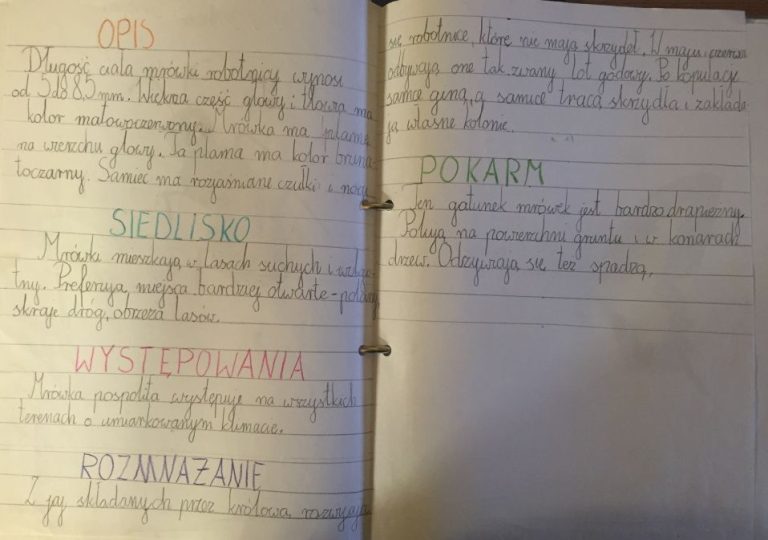 OPIS
Długość ciała mrówki robotnicy wynosi
od 5 do 8,5 mm. Większa część głowy i tłowia ma
kolor malowoczerwony. Mrówka ma plamę
na wierzchu głowy. Ta plama ma kolor bruna
toczarny. Samiec ma rozjaśniane czułki i nogi
SIEDLISKO
Mrówki mieszkają w lasach suchych i
tny. Preferują miejsca bardziej otwarte - polany
skraje dróg, obrzeża lasów.
WYSTĘPOWANIA
Mrówka pospolita występuje na wszystkich
terenach o umiarkowanym klimacie.
ROZMNAŻANIE
Z jaj składanych przez królowa rozwijają
się robotnice, które nie mają skrzydeł. W maju i czerwcu
odbywają one tak zwany lot godowy. Po kopulacji
samce giną, a samice tracą skrzydła i zakłada
ją własne kolonie.
POKARM
Ten gatunek mrówek jest bardzo drapieżny.
Polują na powierzchni gruntu i w konarach
drzew. Odżywiają się też spadzą.